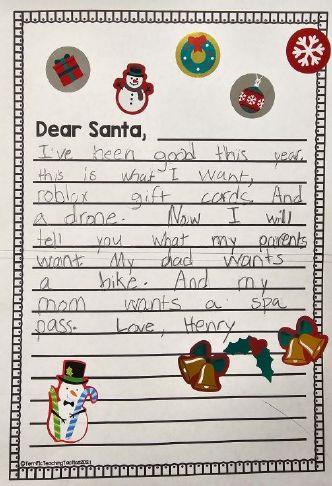 Dear Santa,
I've been good this year.
this is what I want,
roblox gift cards And
a drone. Now I will
tell you what my parents
want. My dad wants
a bike. And my
mom wants a spa
pass. Love, Henry
©TerrificTeachingTactics2021